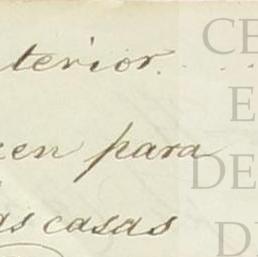 terior. . . .
en para
as casas
CE
E
DE
D